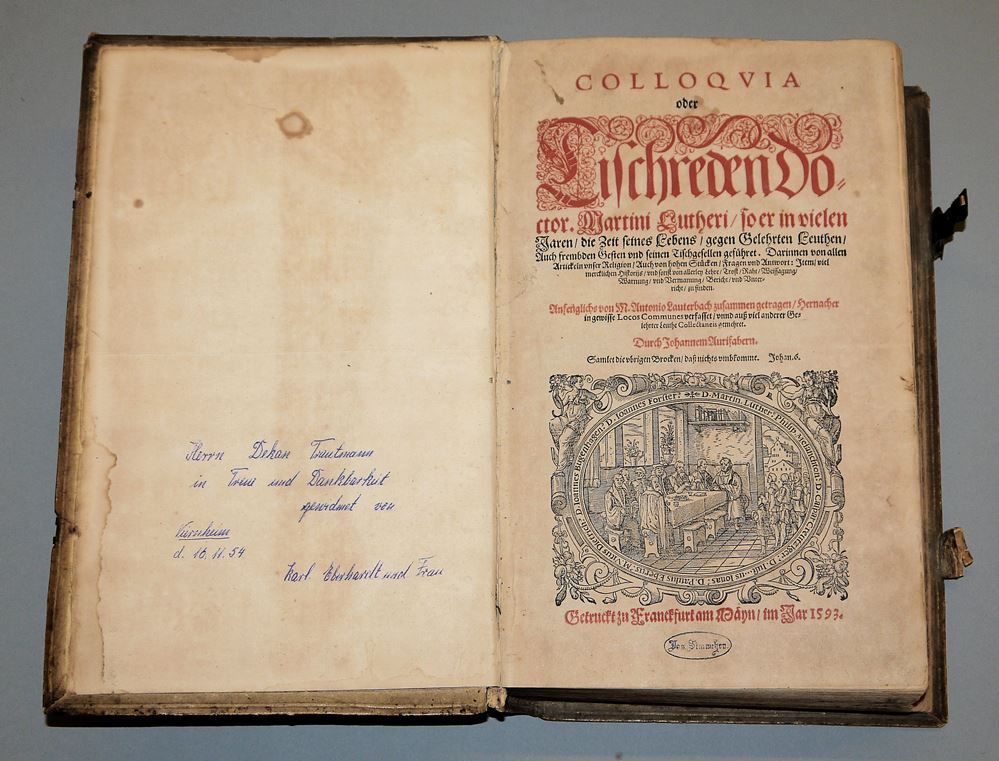 Herrn Dekan Trautmann
in Treue und Dankbarkeit
gewidmet von
Viernheim
d. 16.11.54
Karl Eberhardt und Frau
COLLOQVIA
oder
Tischreden Do-
ctor. Martini Lutheri/ so er in vielen
Jaren/ die Zeit seines Lebens/ gegen Gelehrten Leuthen/
Auch frembden Gesten vnd seinen Tischgesellen geführet. Darinnen von allen
Artickeln vnser Religion/ Auch von hohen Stücken/ Fragen vnd Antwort: Item/ viel
mercklichen Historijs/ vnd sonst von allerley Lehre/ Trost/ Raht/ Weissagung/
Warnung/ vnd Vermanung/ Bericht/ vnd Vnter-
richt/ zu finden.
Anfenglichs von M. Antonio Lauterbach zusammen getragen/ Hernacher
in gewisse Locos Communes verfasset/ vnnd auß viel anderer Ge-
lehrter Leuthe Collectaneis gemehret.
Durch Johannem Aurifabern.
Samlet die vbrigen Brocken/ daß nichts vmbkomme. Johan. 6.
D. Martin Luther: Philip Melanthon: D. Caspar Creutziger: D. Jonas: D. Paulus Eberus: M. Vitus D. Joannes D. Joannes Forster:
Getruckt zu Franckfurt am Mäyn/ im Jar 1593.